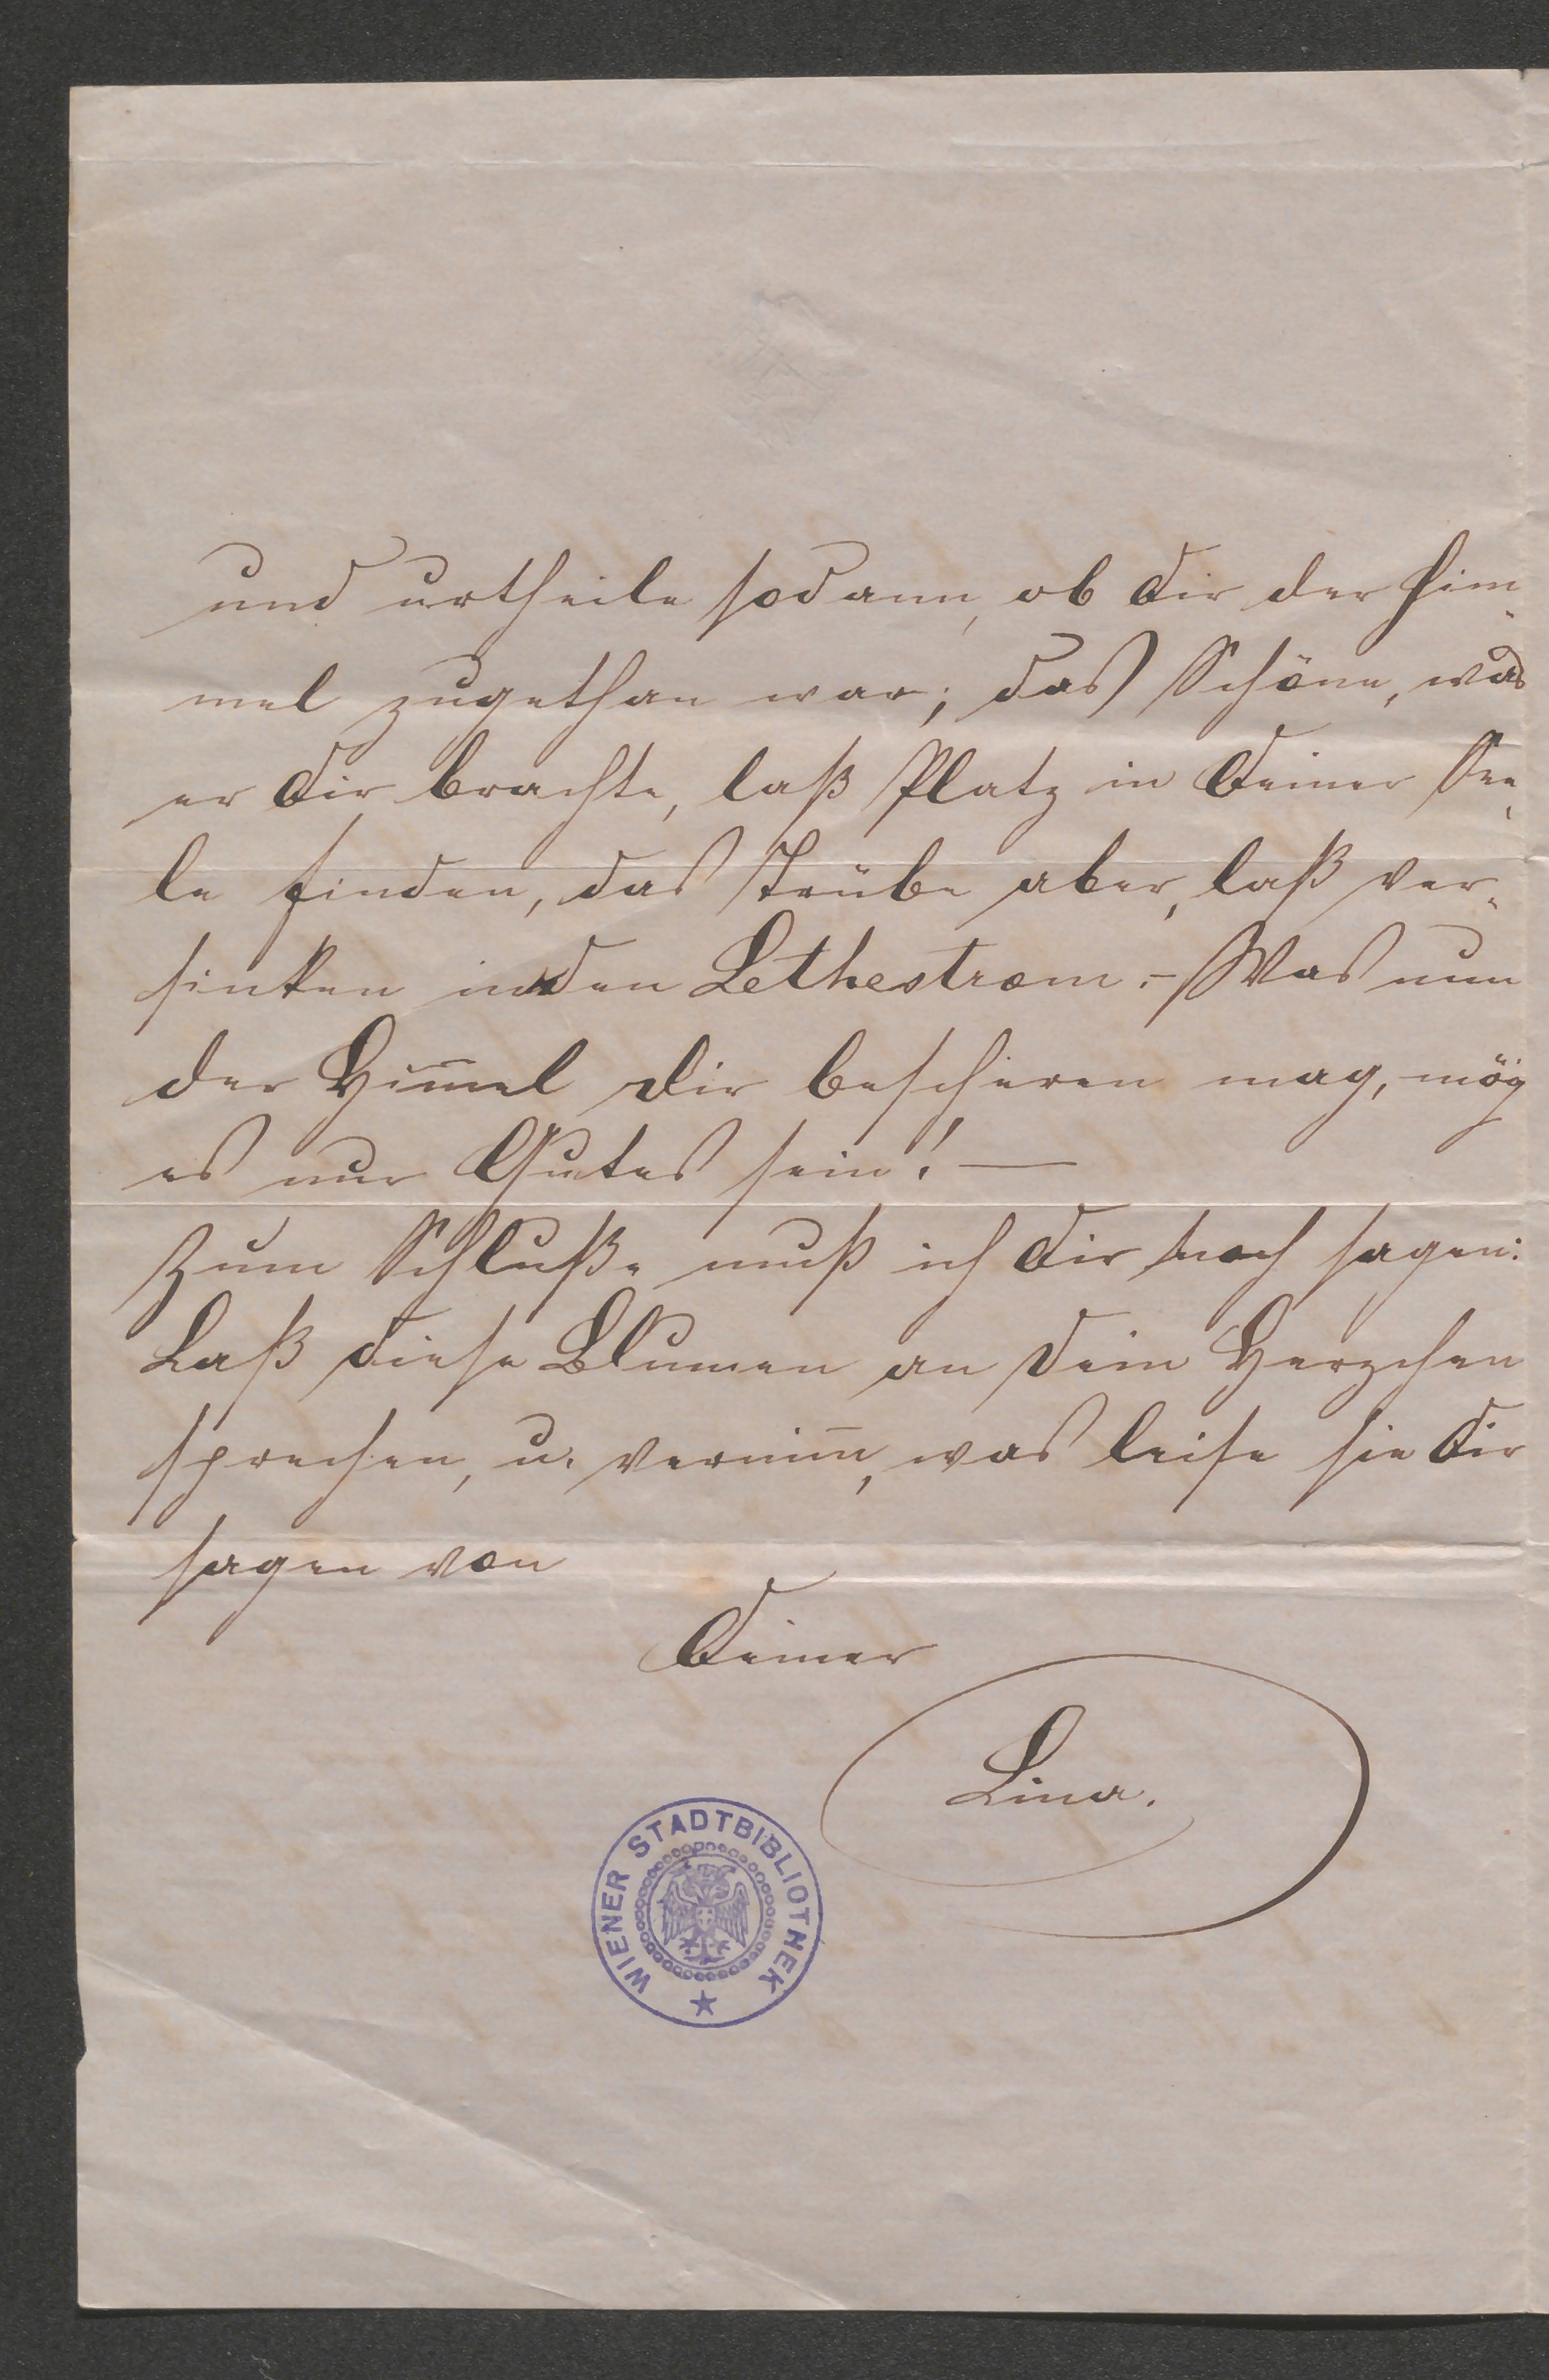 und urtheile sodann, ob Dir der Him-
mel zugethan war; das Schöne, was
er Dir brachte, laß Platz in Deiner See-
le finden, das Trübe aber, laß ver-
sinken in den Lethestrom. – Was nun
der Him̅el Dir bescheren mag, mög
es nur Gutes sein! —
Zum Schluße muß ich Dir noch sagen:
Laß diese Blumen an Dein Herzchen
sprechen, u. vernim̅, was leise sie Dir
sagen von
Deiner
Lina.
WIENER STADTBIBLIOTHEK